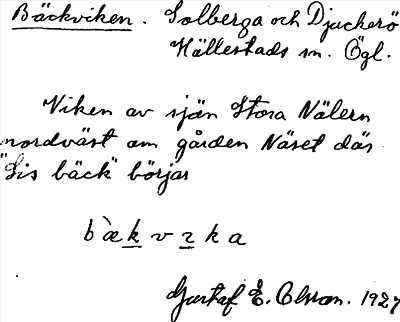 Bäckviken. Solberga och Djuckerö
Hällestads sn. Ögl.
Viken av sjön Stora Nälern
nordväst om gården Näset där
"Sis bäck" börjar
bæ̀k v ɿ k a
Gustaf E. Olsson. 1927